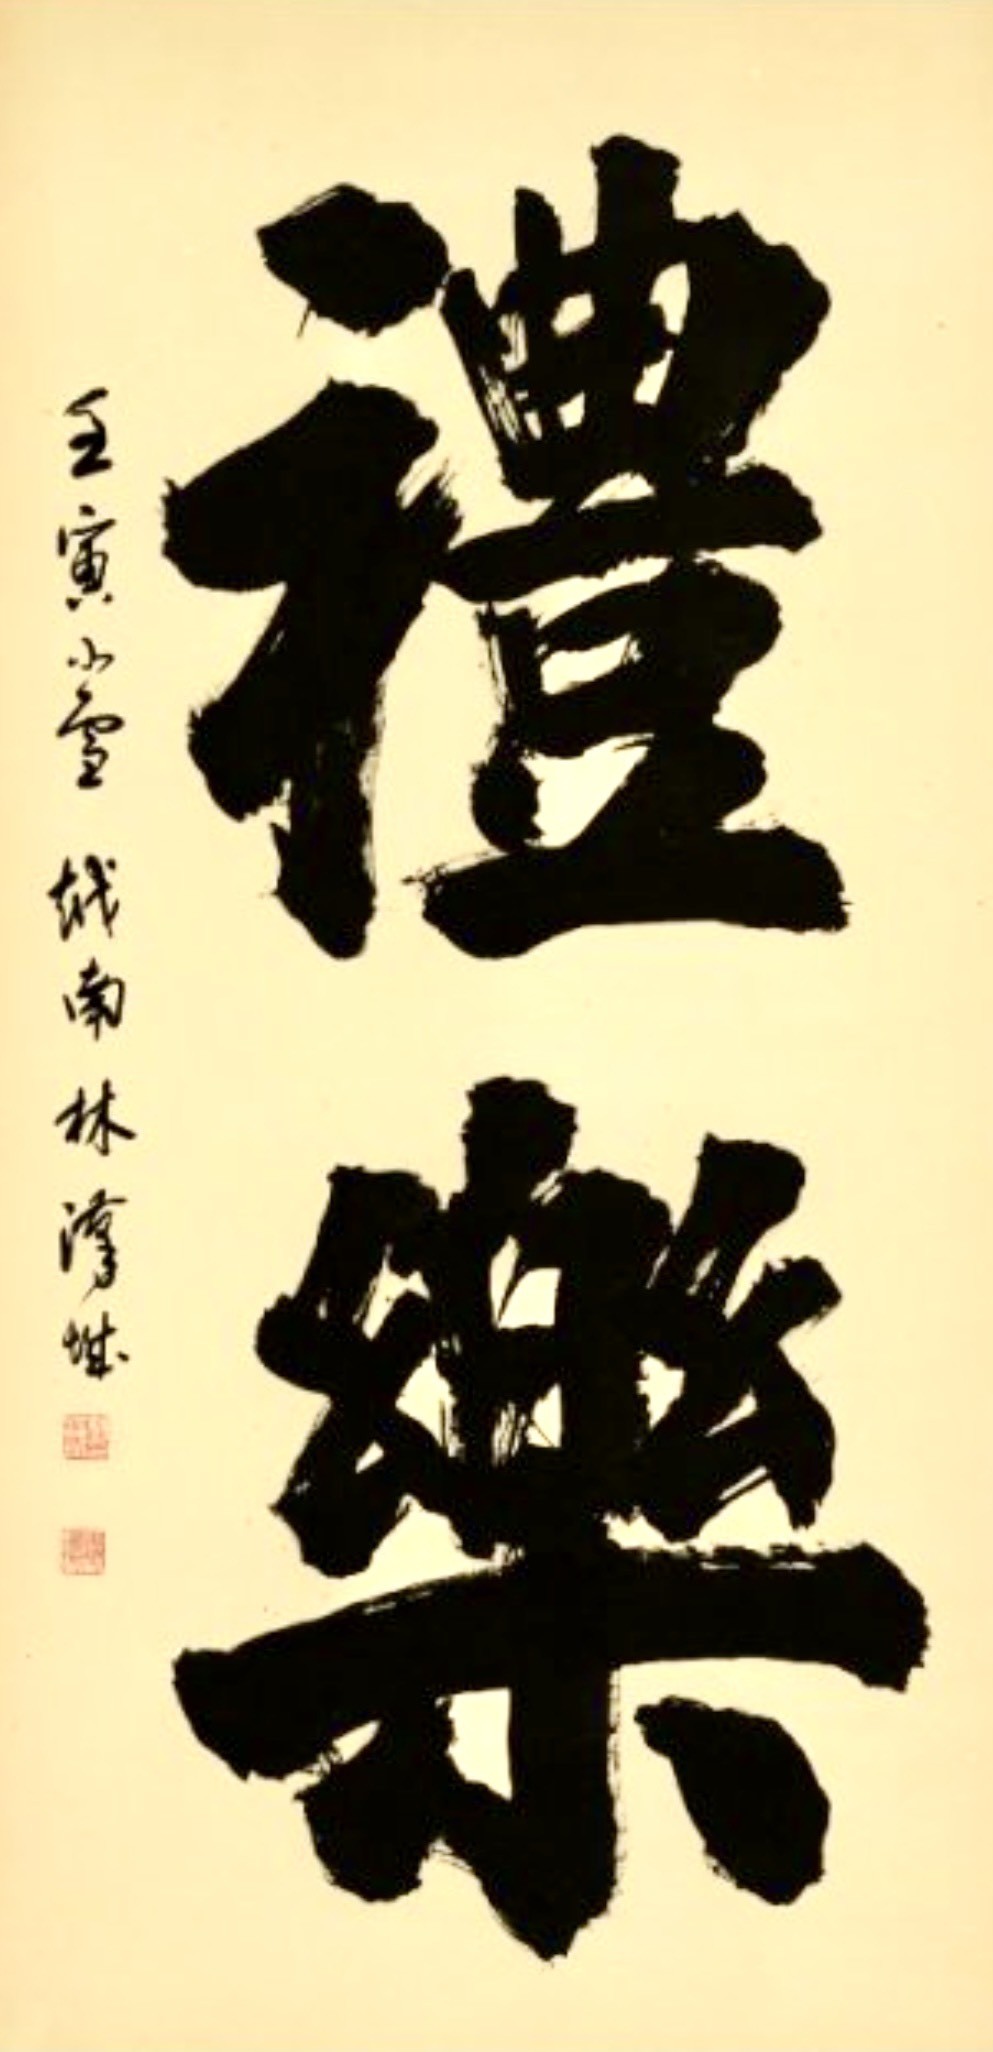 禮樂
壬寅小雪 越南林漢城